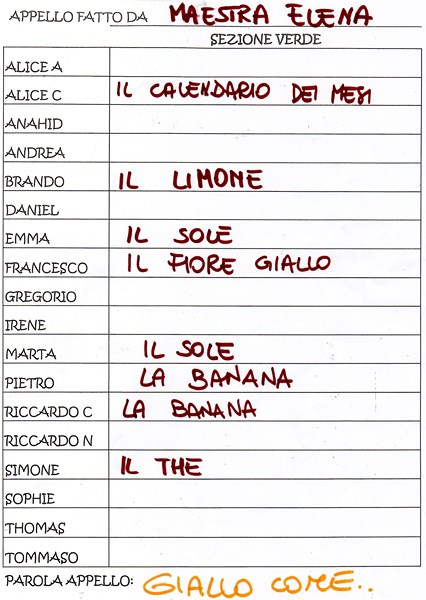 APPELLO FATTO DA MAESTRA ELENA
SEZIONE VERDE
ALICE A
ALICE C IL CALENDARIO DEI MESI
ANAHID
ANDREA
BRANDO IL LIMONE
DANIEL
EMMA IL SOLE
FRANCESCO IL FIORE GIALLO
GREGORIO
IRENE
MARTA IL SOLE
PIETRO LA BANANA
RICCARDO C LA BANANA
RICCARDO N
SIMONE IL THE
SOPHIE
THOMAS
TOMMASO
PAROLA APPELLO: GIALLO COME..